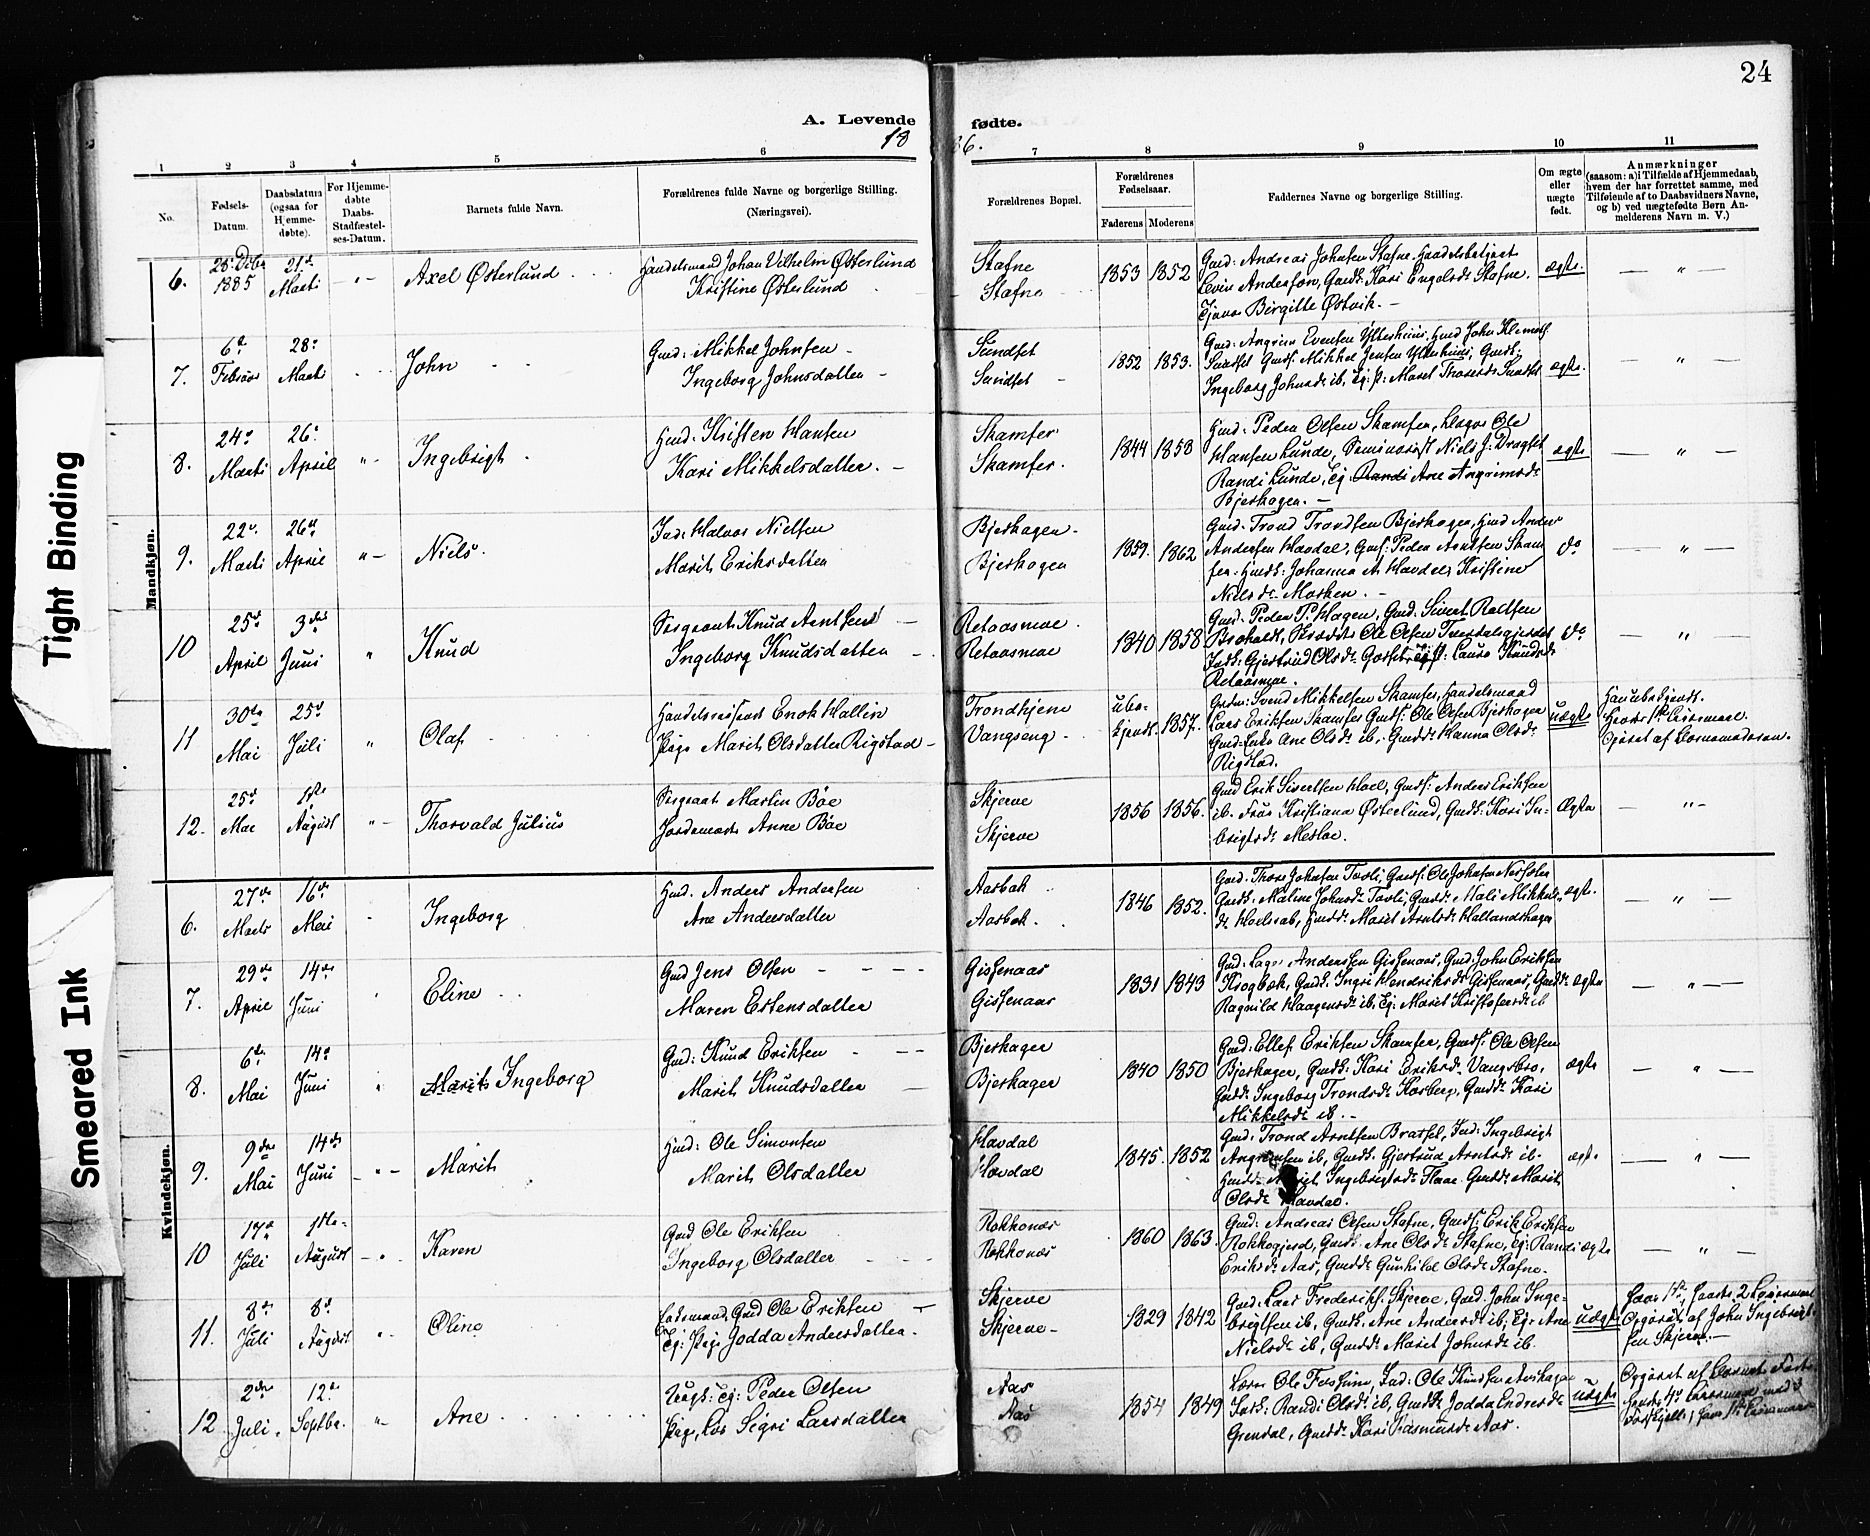 24
A. Levende
fødte.
18
86.
Tight Binding
Smeared Ink
1 2 3 4 5 6 7 8 9 10 11
No.
Fødsels-
Datum.
Daabsdatum
(ogsaa for
Hjemme-
døbte).
For Hjemme-
døbte
Daabs-
Stadfæstel-
ses-Datum.
Barnets fulde Navn.
Forældrenes fulde Navne og borgerlige Stilling.
(Næringsvei).
Forældrenes Bopæl.
Forældrenes
Fødselsaar.
Faderens Moderens
Faddernes Navne og borgerlige Stilling.
Om ægte
eller
uægte
født.
Anmærkninger
(saasom: a) i Tilfælde af Hjemmedaab,
hvem der har forrettet samme, med
Tilføiende af to Daabsvidners Navne,
og b) ved uægtefødte Børn An-
melderens Navn m. V.)
Mandkjøn.
6. 28 Debr 1885 21de Marti Axel Østerlund
Handelsmand Johan Vilhelm Østerlund
Kristine Østerlund
Stafne
Stafne
1853 1852
Gmd: Andreas Johnsen Stafne, Handelsbetjent
Anderson, Gmds: Kari Engelsd: Stafne.
Birgitte Østvik.
ægte
7. 6te Februar 28 Marti John
Gmd: Mikkel Johnsen
Ingeborg Johnsdatter
Sundset
Sundset
1852 1853.
Gmd: Angrim Evensen Ytterhuus, Hmd John Klemets
Sundset Gmds: Mikkel Jensen Ytterhuus, Gmds:
Ingeborg Johnsd: ib, Eg: p: Marit Thoresd: Sundset
ægte.
8. 24de Marti 26 April Ingebrigt
Hmd: Kristen Hansen
Kari Mikkelsdatter.
Skamfer
Skamfer.
1844 1858
Hmd: Peder Olsen Skamfer, Ole
Hansen Lunde, Seminarist Niels J: Dragset
Randi Lunde, Eg: Randi Ane Angrimsd:
Bjerkagen.
ægte
9. 22. Marti 26de April Niels.
Ind: Halvor Nielsen
Marit Eriksdatter
Bjerkagen.
Bjerkagen
1859. 1862
Gmd: Trond Trondsen Bjerkagen, Hmd Anders
Andersen Havdal, Gmf: Peder Arntsen Skam
fer. Hmds: Johanna A. Havdal, Kristine
Nielsd: Mosken.
do
10 25de April 3die Juni Knud
Sergeant Knud Arntsen
Ingeborg Knudsdatter
Retaasmoe.
Retaasmoe
1840 1858
Gmd: Peder P. Hagen, Gmd: Sivert
Ole Olsen
Inds: Gjertrud Olsd: Laura Knudsd:
Retaasmoe.
do
11 30te Mai 25de Juli Olaf
Handelsreisende Enok Hallin
Pige Marit Olsdatter Rigstad
Trondhjem
Vangseng
ube-
kjendt. 1857.
Svend Mikkelsen Skamfer, Handelsmand
Lars Eriksen Skamfer Gmds: Ole Olsen Bjerkagen
Gmd: Enke Ane Olsd: ib, Gmdd: Hanna Olsd:
Rigstad.
uægte
1ste Leiermaal.
Opgivet af Barnemoderen.
12. 25de Mai 1ste August Thorvald Julius
Sergeant Martin Bøe
Jordemoder Anne Bøe
Skjerve
Skjerve
1856 1856.
Gmd Erik Sivertsen Hoel, Gmds: Anders Eriksen
ib. Frue Kristiana Østerlund, Gmds: Kari In-
brigtsd: Mesloe.
Ægte
Kvindekjøn.
6. 27de Marts 16de Mai Ingeborg
Hmd. Anders Andersen
Ane Andersdatter
Aasbak
Aasbak.
1846 1852.
Gmd: Thore Johnsen Tovli, Gmds: Ole Johnsen
Gmds: Maline Johnsd: Tovli, Gmds: Mali Mikkels-
d: Hoelsab, Hmdd: Marit Arntsd: Hallandshagen
ægte.
7. 29de April 14de Juni Eline
Gmd Jens Olsen
Maren Estensdatter
Gissenaas
Gissenaas
1831 1843
Gmd: Lars Anderssen Gissenaas, Gmd: John Eriksen
Krogbæk, Gmds: Ingri Hendriksd: Gissenaas, Gmdd:
Ragnild Haagensd: ib, Eg: Marit Kristofersd: ib
ægte
8. 6te Mai 14de Juni Marit Ingeborg
Gmd: Knud Eriksen
Marit Knudsdatter
Bjerkager
Bjerkager
1840 1850
Gmd: Ellef Eriksen Skamfer, Gmds: Ole Olsen
Bjerkager, Gmds: Kari Eriksd: Vangsbro,
Gmdd: Ingeborg Trondsd: Kosberg, Gmdd: Kari
Mikkelsd: ib.
ægte
9. 9de Mai 14de Juni Marit
Hmd: Ole Simonsen
Marit Olsdatter
Havdal
Havdal
1845. 1852
Gmd: Trond Arntsen Brattset, Ind: Ingebrigt
Angrimsen ib, Gmds: Gjertrud Arntsd: ib.
Hmds: Marit Ingebrigtsd: Flaae. Gmdd: Marit
Olsd: Havdal.
ægte
10 17de Juli 1ste August Karen
Gmd Ole Eriksen
Ingeborg Olsdatter
Rokkones
Rokkones
1860 1863.
Gmd: Andreas Olsen Stafne, Gmds: Erik Eriksen
Rokkogjerd, Gmds: Ane Olsd: Stafne, Eg: Randi
Eriksd: Aas, Gmdd: Gunhild Olsd: Stafne.
ægte
11. 8de Juli 8de August Oline
Gmd Ole Eriksen
Eg: Pige Jodda Andersdatter.
Skjerve
Skjerve
1829 1842
Gmd: Lars Frederiks: Skjerve, Gmd: John Inge-
brigtsen ib, Gmds: Ane Andersd: ib, Eg: Ane
Nielsd: ib, Gmdd: Marit Johnsd: ib.
uægte
Hans 1ste, hendes 2 Leiermaal
Opgivet af John Ingebrigt-
sen Skjerve.
12 2den Juli 12te Septbr. Ane
Ungk: Eg: Peder Olsen
Pige, Løs Sigri Larsdatter
Aas
Aas
1854 1849
Lærer Ole Ind: Ole Knudsen
Inds: Randi Olsd: ib, Gmdd: Jodda Endresd:
Grendal, Gmdd: Kari Rasmusd: Aas.
uægte
Opgivet af Barnets Fader
Hendes 4de Leiermaal med 3
Forskjellige, hans 1ste Leiermaal